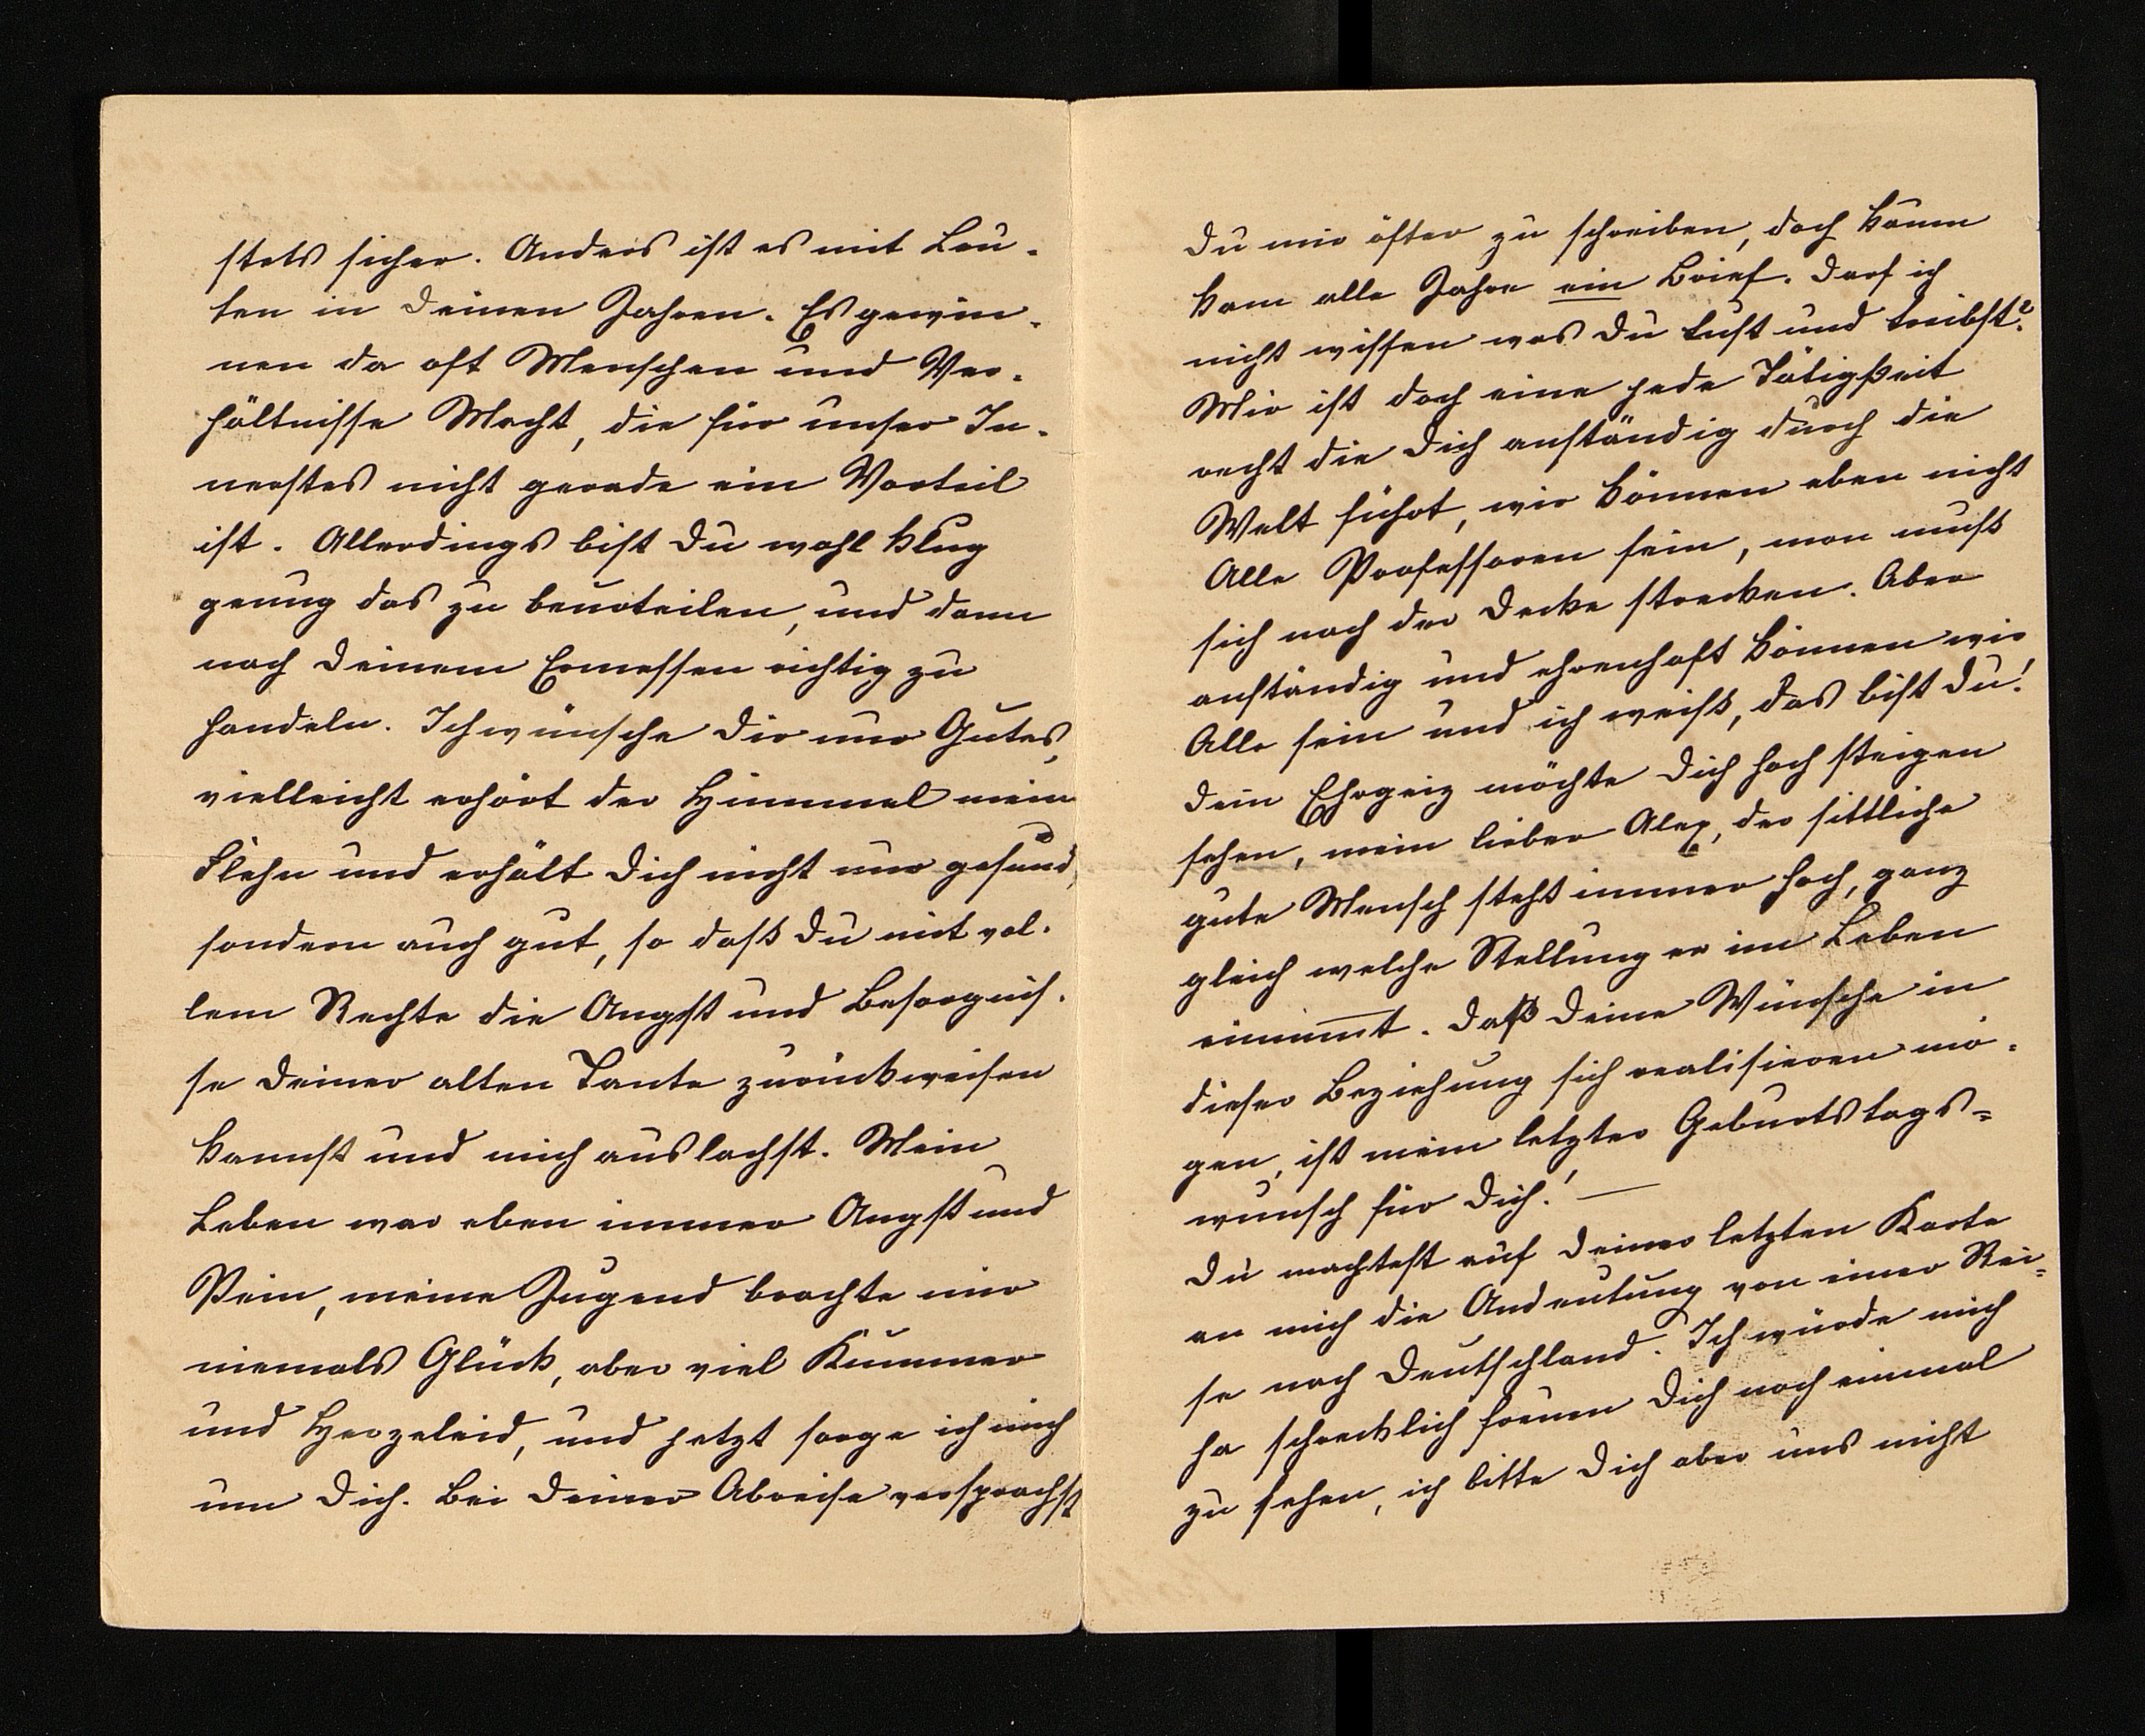 stets sicher. Anders ist es mit Leu-
ten in Deinen Jahren. Es gewin-
nen da oft Menschen und Ver-
hältnisse Macht, die für unser In-
nerstes nicht gerade ein Vorteil
ist. Allerdings bist Du wohl klug
genug das zu beurteilen, und dann
nach Deinem Ermessen richtig zu
handeln. Ich wünsche Dir nur Gutes,
vielleicht erhört der Himmel mein
Flehn und erhält Dich nicht nur gesund,
sondern auch gut, so daß Du mit vol-
lem Rechte die Angst und Besorgnis-
se Deiner alten Tante zurückweisen
kannst und mich auslachst. Mein
Leben war eben immer Angst und
Pein, meine Jugend brachte mir
niemals Glück, aber viel Kummer
und Herzeleid, und jetzt sorge ich mich
um Dich. Bei Deiner Abreise versprachst
Du mir öfter zu schreiben, doch kaum
kam alle Jahre ein Brief. Darf ich
nicht wissen was Du tust und treibst?
Mir ist doch eine jede Tätigkeit
recht die Dich anständig durch die
Welt führt, wir können eben nicht
Alle Professoren sein, man muß
sich nach der Decke strecken. Aber
anständig und ehrenhaft können wir
Alle sein und ich weiß, das bist Du!
Dein Ehrgeiz möchte Dich hoch steigen
sehen, mein lieber Alex, der sittliche
gute Mensch steht immer hoch, ganz
gleich welche Stellung er im Leben
einimmt. Daß Deine Wünsche in
dieser Beziehung sich realisieren mö-
gen, ist mein letzter Geburtstags=
wunsch für Dich! —
Du machtest auf Deiner letzten Karte
an mich die Andeutung von einer Rei=
se nach Deutschland. Ich würde mich
ja schrecklich freuen Dich noch einmal
zu sehen, ich bitte Dich aber uns nicht